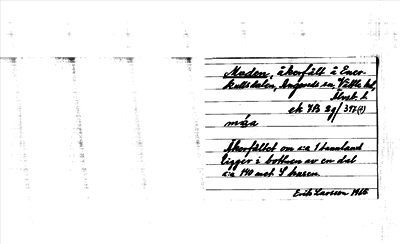 Maden, åkerfält å Ener-
kullsdalen, Angereds sn, Vättle hd,
Älvsb. l.
ek 7B 2g/
måa
Åkerfältet om c:a 1 tunnland
ligger i bottnen av en dal
c:a 140 met S husen.
Erik Larsson 1966